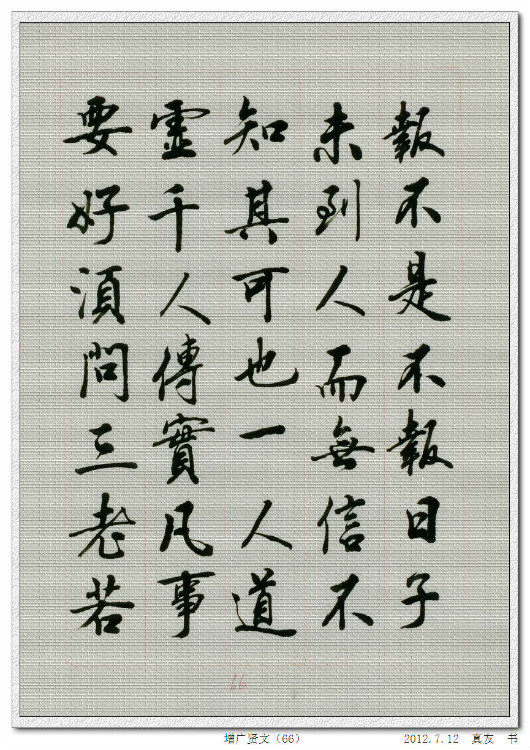 報不是不報日子
未到人而無信不
知其可也一人道
靈千人傳實凡事
要好須問三老若
66
增广贤文（66）
2012.7.12 真友 书